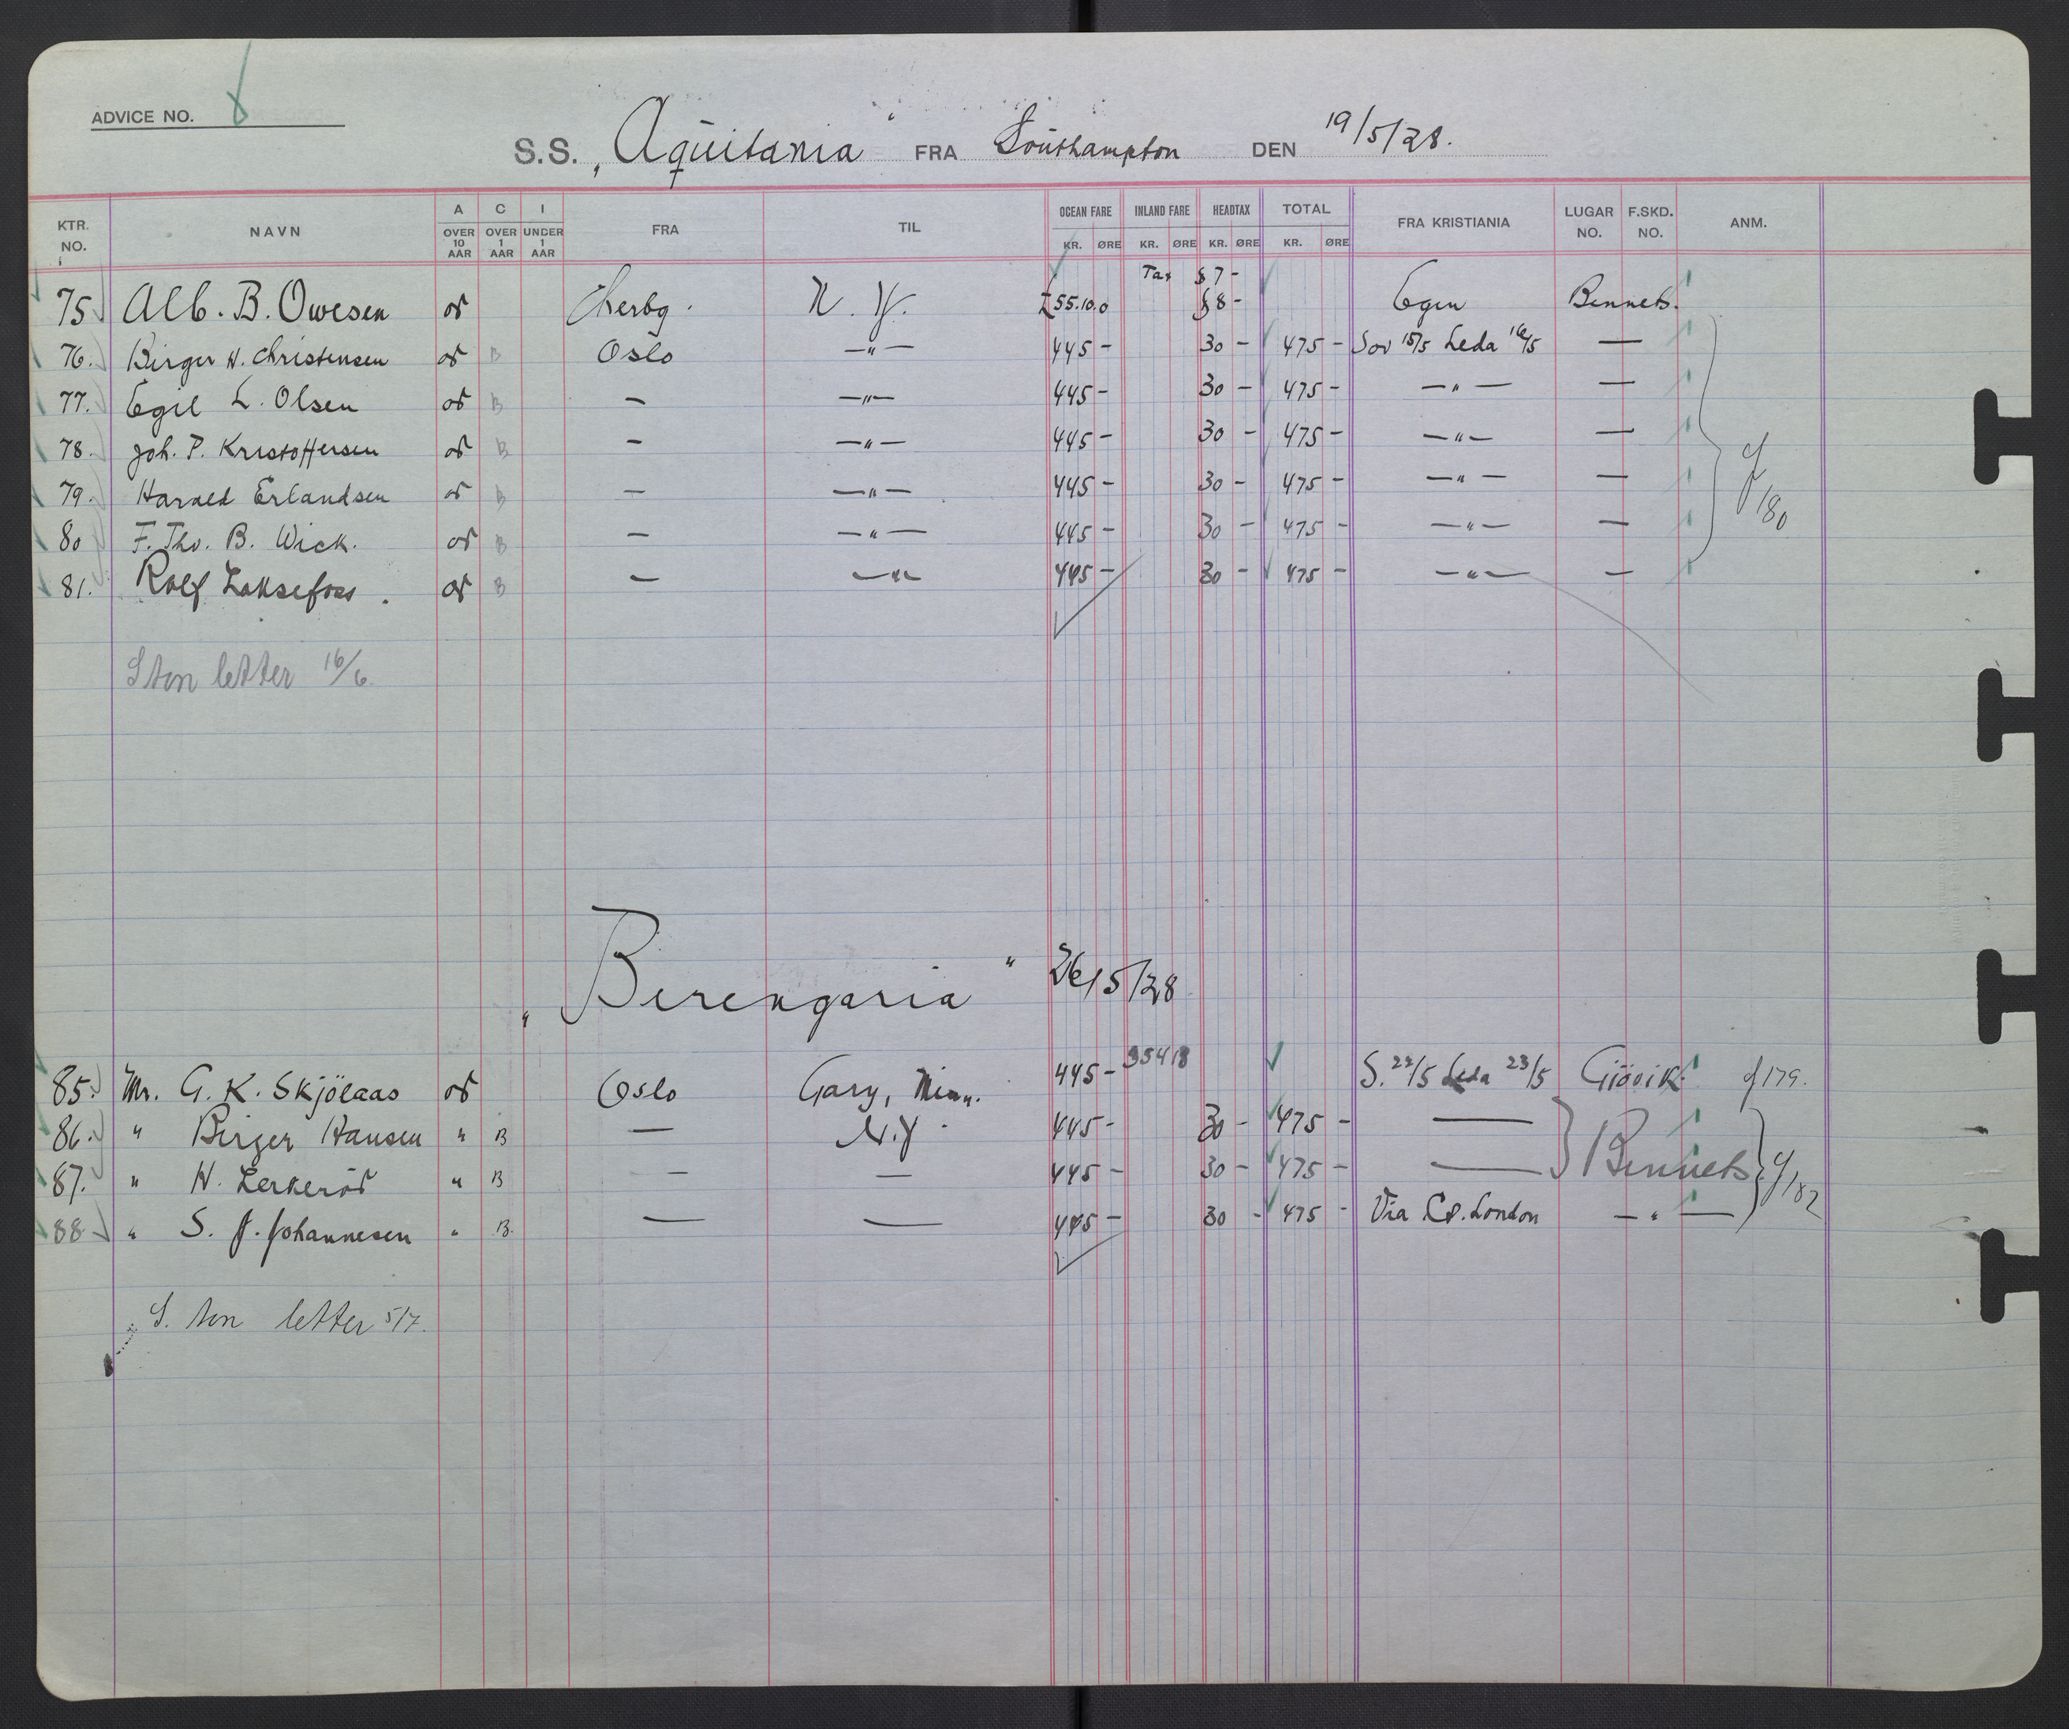 ADVICE NO. 8
S.S. „Aquitania" FRA Southampton DEN 19/5/28.
KTR. NO. NAVN A OVER 10 AAR C OVER 1 AAR I UNDER 1 AAR FRA TIL OCEAN FARE KR. ØRE INLAND FARE KR. ØRE HEADTAX KR. ØRE TOTAL KR. ØRE FRA KRISTIANIA LUGAR NO. F.SKD. NO. ANM.
Tax $7-
75 Alb. B. Owesen Cherbg. N. Y. £55.10.0 $8- Egen Bennets.
76. Birger H. Christensen B Oslo —"— 445- 30- 475- Sov 15/5 Leda 16/5 —
77. Egil L. Olsen B — —"— 445- 30- 475- —"— —
78. Joh. P. Kristoffersen B — —"— 445- 30- 475- —"— —
79. Harald Erlandsen B — —"— 445- 30- 475- —"— — 180
80 F. Tho. B. Wick. B — —"— 445- 30- 475- —"— —
81. Rolf Laksefoss. B — —"— 445- 30- 475- —"— —
S ton letter 16/6.
„Berengaria" 26/5/28
85. Mr. G. K. Skjölaas Oslo Gary, Minn. 445- 35418 S. 22/5 Leda 23/5 Giövik. 179.
86. " Birger Hansen " B — N.Y. 445- 30- 475- — Bennets 182
87. " H. Lerkeröd " B — — 445- 30- 475- —
88 " S. J. Johannesen " B. — — 445- 30- 475- Via London —"—
S. ton letter 5/7.